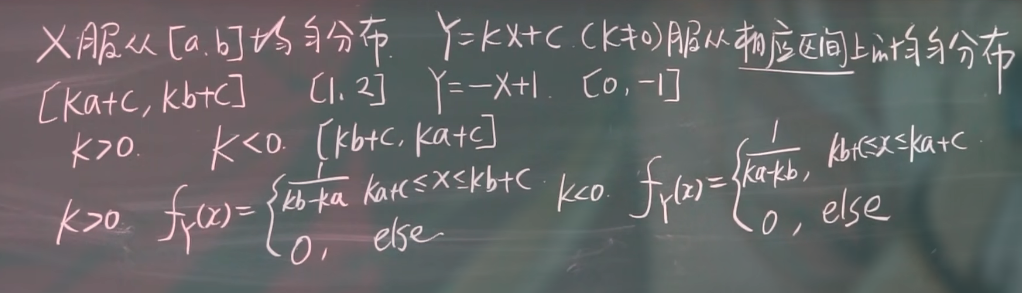 X服从[a.b]均匀分布. Y=kX+c.(k≠0)服从相应区间上的均匀分布
[ka+c, kb+c] [1.2] Y=-X+1. [0,-1]
k>0. k<0. [kb+c, ka+c]
k>0. f_Y(x)={1/(kb-ka) ka+c≤x≤kb+c. 0, else k<0. f_Y(x)={1/(ka-kb), kb+c≤x≤ka+c. 0, else